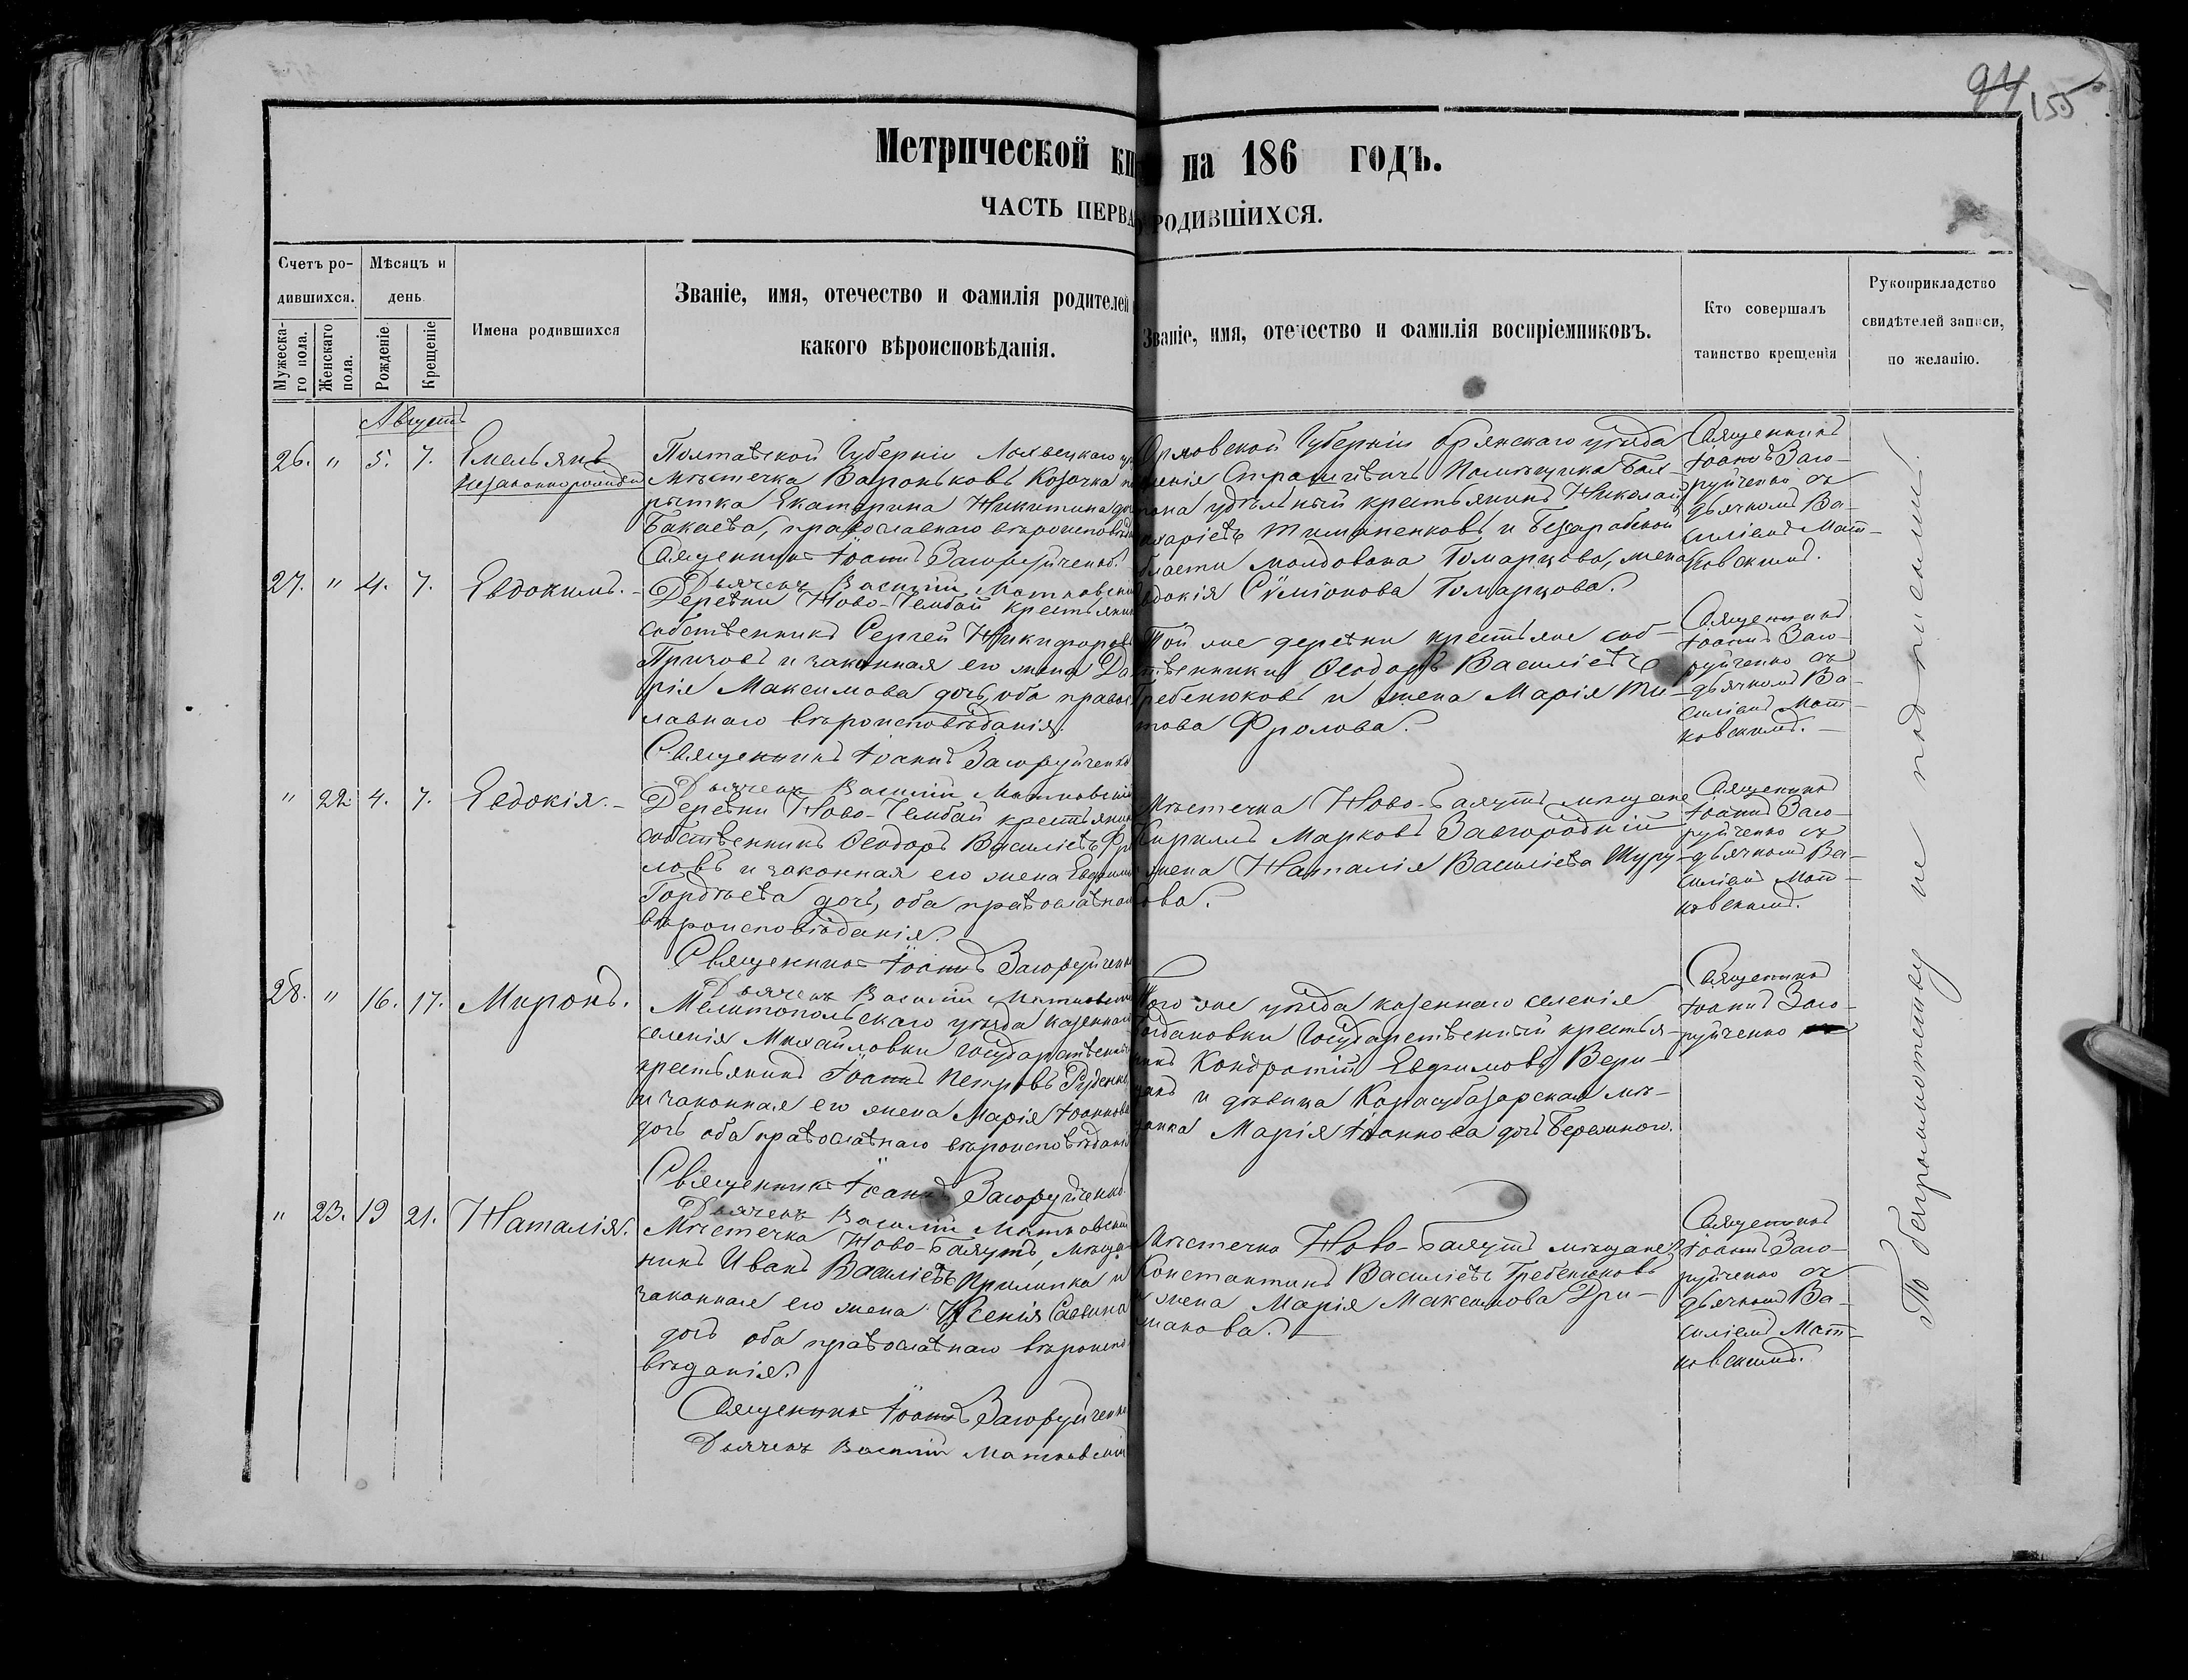 94 155
Метрической кни на 186 годъ.
ЧАСТЬ ПЕРВА РОДИВШІИХСЯ.
Счетъ ро-
дившихся.
Мужеска-
го пола.
Женскаго
пола.
Мѣсяцъ и
день
Рожденіе
Крещеніе
Имена родившихся
Званіе, имя, отечество и фамилія родителей
какого вѣроисповѣданія.
Званіе, имя, отечество и фамилія воспріемниковъ.
Кто совершалъ
таинство крещенія
Рукоприкладство
свидѣтелей записи,
по желанію.
Августъ
26. " 5. 7. Емельянъ
незаконнорожден
Полтавской Губерніи
мѣстечка Вароньковъ Козачка
Екатерина Никитина до
Бакаева, православнаго вѣроисповѣд
Священникъ Іоаннъ Загоруйченко.
Дьячекъ Василій Матковскій
Орловской Губерніи брянскаго уѣзда
Помѣщика
удѣльный крестьянинъ Николай
и Безарабской
бласти молдована Томарцова, жена
вдокія Сѵмiонова Томарцова.
Священникъ
Іоаннъ Заго-
руйченко съ
дьячкомъ Ва-
силіемъ Мат-
ковскимъ.
27. " 4. 7. Евдокимъ.
Деревни Ново-Чембай крестьянин
собственникъ Сергей Никифоровъ
и законная его жена Да-
рія Максимова дочь, оба правос
лавнаго вѣроисповѣданія.
Священникъ Іоаннъ Загоруйченко
Дьячекъ Василій Матковскій
Той же деревни крестьяне соб-
твенники Ѳеодоръ Василіевъ
Гребенюковъ и жена Марія Ти-
това Фролова.
Священникъ
Іоаннъ Заго-
руйченко съ
дьячкомъ Ва-
силіемъ Мат-
ковскимъ.
" 22 4. 7. Евдокія.
Деревни Ново-Чембай крестьянин
собственникъ Ѳеодоръ Василіевъ Фро
ловъ и законная его жена
Гордѣева дочь, оба православнаго
вѣроисповѣданія.
Священникъ Іоаннъ Загоруйченко
Дьячекъ Василій Матковскій
Мѣстечка Ново-Баяутъ мѣщане
Кириллъ Марковъ Завгородній
жена Наталія Василіева Шуру-
ова.
Священникъ
Іоаннъ Заго-
руйченко съ
дьячкомъ Ва-
силіемъ Мат-
ковскимъ.
28. " 16. 17. Миронъ.
Мелитопольскаго уѣзда казеннаго
селенія Михайловки государственный
крестьянинъ Іоаннъ Петровъ Руденко,
и законная его жена Марія Іоаннова
дочь оба православнаго вѣроисповѣданія
Священникъ Іоаннъ Загоруйченко
Дьячекъ Василій Матковскій
Того же уѣзда казеннаго селенія
огдановки Государственный крестья-
нинъ Кондратій Евфимовъ
и дѣвица Карасубазарская мѣ-
щанка Марія Іоаннова дочь Бережного.
Священникъ
Іоаннъ Заго-
руйченко
" 23. 19 21. Наталія.
Мѣстечка Ново-Баяутъ, Мѣща-
нинъ Иванъ Василіевъ Прилипка и
законная его жена Ксенія Савина
дочь оба православнаго вѣроиспо
вѣданія.
Священникъ Іоаннъ Загоруйченко
Дьячекъ Василій Матковскій
Мѣстечка Ново-Баяутъ мѣщане
Константинъ Василіевъ Гребенюковъ
и жена Марія Максимова Дри-
манова.
Священникъ
Іоаннъ Заго-
руйченко съ
дьячкомъ Ва-
силіемъ Мат-
ковскимъ.
По безграмотству не подписали.